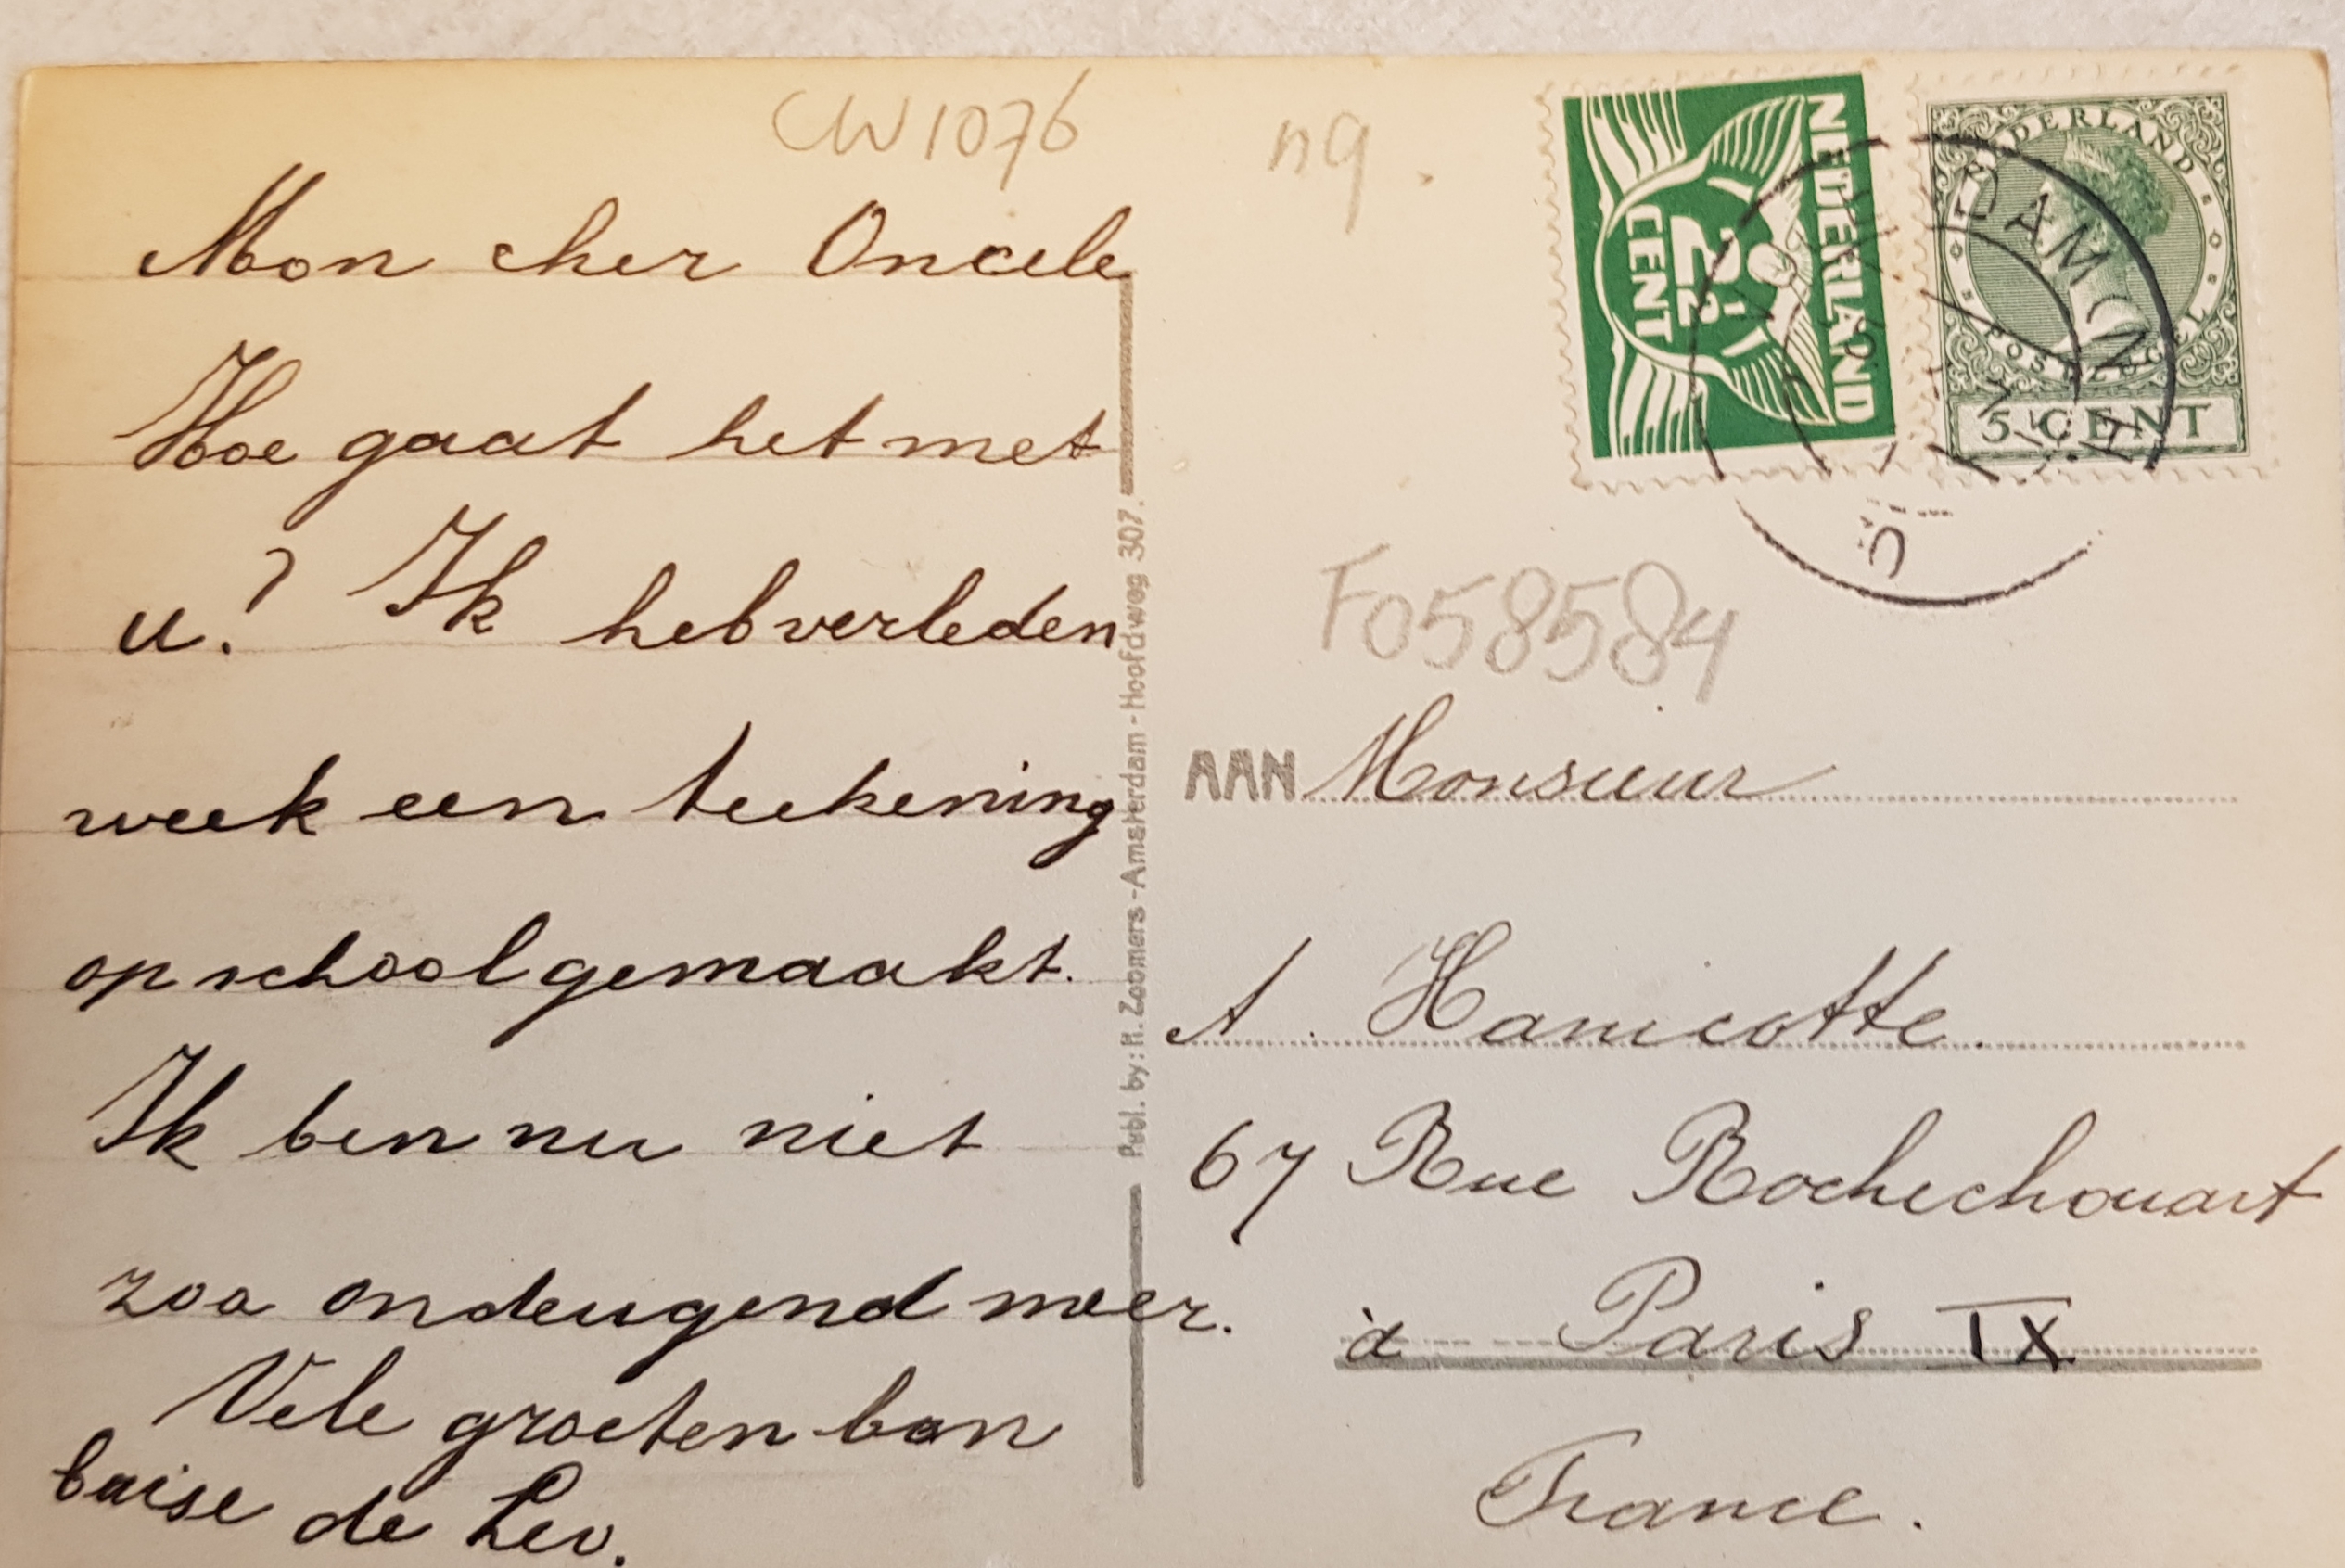 CW1076
Mon cher Oncele
Hoe gaat het met
u? Ik heb verleden
week een teekening
op school gemaakt.
Ik ben nu niet
zoo ondeugend meer.
Vele groeten bon
baise de Leo.
Publ. by: H. Zoomers - Amsterdam - Hoofdweg 307.
nq.
NEDERLAND
2½
CENT
NEDERLAND
POSTZEGEL
5 CENT
DAM
F058584
AAN Monsieur
A. Hanicotte.
67 Rue Rochechouart
à Paris IX
France.